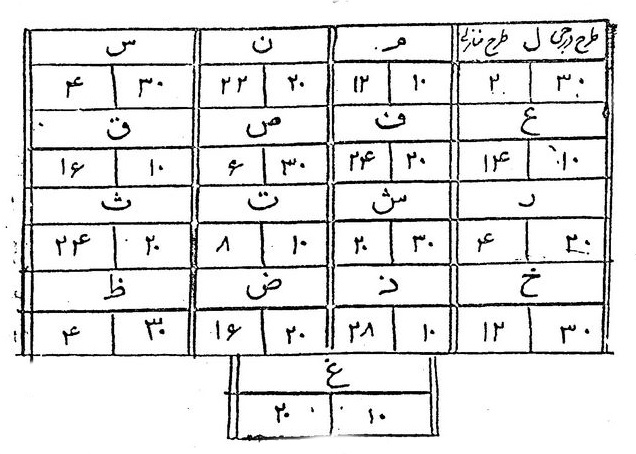 طرح درجی ل طرح منازلی م ن س
۳۰ ۲ ۱۰ ۱۲ ۲۰ ۲۲ ۳۰ ۴
ع ف ص ق
۱۰ ۱۴ ۲۰ ۲۴ ۳۰ ۶ ۱۰ ۱۶
ر ش ت ث
۲۰ ۴ ۳۰ ۲۰ ۱۰ ۸ ۲۰ ۲۴
خ ذ ض ظ
۳۰ ۱۲ ۱۰ ۲۸ ۲۰ ۱۶ ۳۰ ۴
غ
۱۰ ۲۰